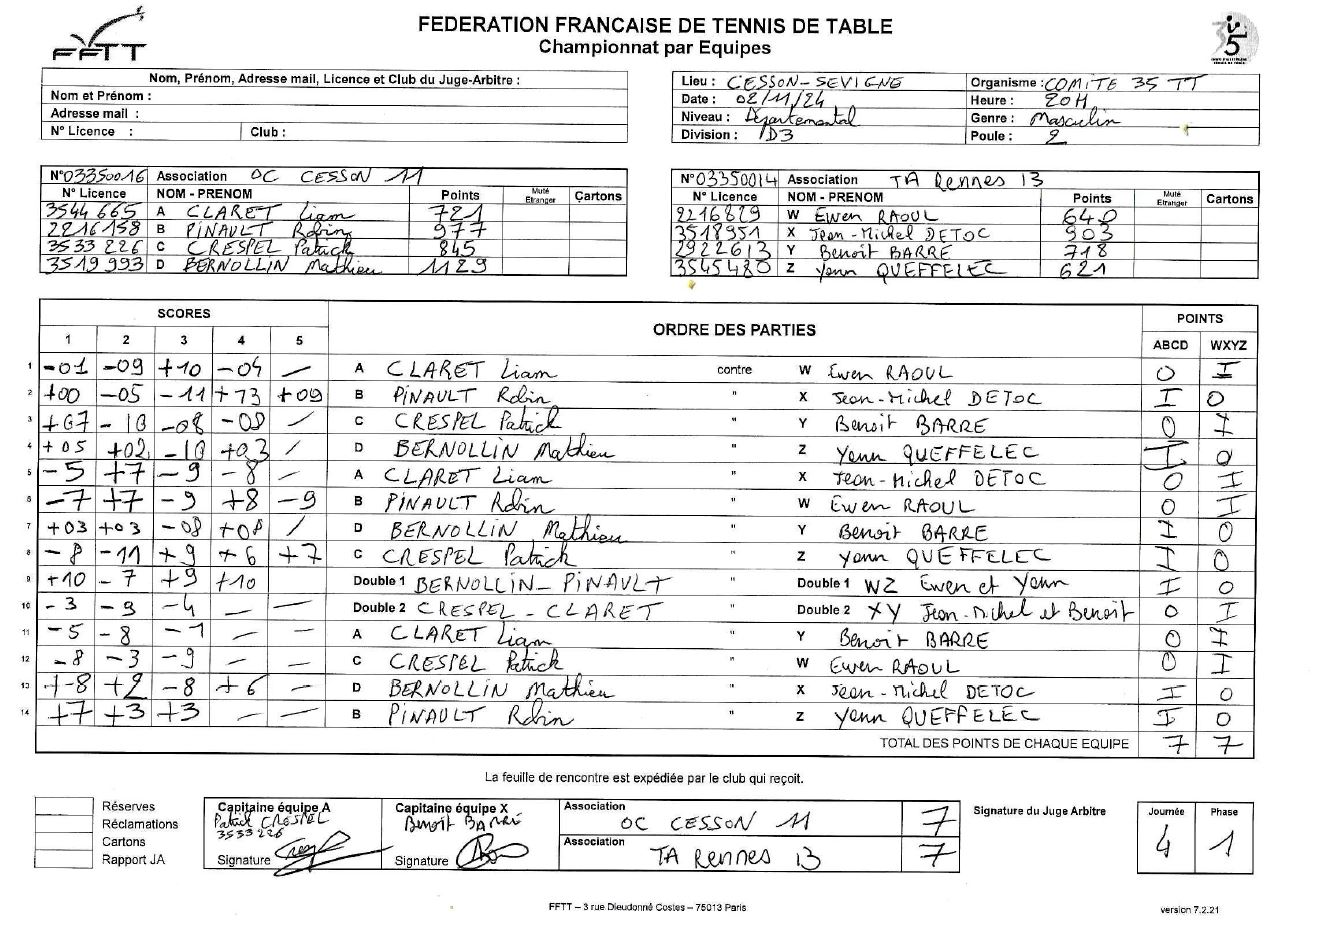 FFTT
FEDERATION FRANCAISE DE TENNIS DE TABLE
Championnat par Equipes
35
Nom, Prénom, Adresse mail, Licence et Club du Juge-Arbitre :
Nom et Prénom :
Adresse mail :
N° Licence : Club :
Lieu : CESSON-SEVIGNE Organisme : COMITE 35 TT
Date : 02/11/24 Heure : 20H
Niveau : Départemental Genre : Masculin
Division : D3 Poule : 2
N°03350016 Association OC CESSON 11
N° Licence NOM - PRENOM Points Muté Etranger Cartons
3544665 A CLARET Liam 721
2216158 B PINAULT Robin 977
3533226 C CRESPEL Patrick 845
3519993 D BERNOLLIN Mathieu 1129
N°03350014 Association TA Rennes 13
N° Licence NOM - PRENOM Points Muté Etranger Cartons
2216829 W Ewen RAOUL 640
3518951 X Jean-Michel DETOC 903
2922613 Y Benoit BARRE 718
3545480 Z Yann QUEFFELEC 621
SCORES ORDRE DES PARTIES POINTS
1 2 3 4 5 ABCD WXYZ
1 -01 -09 +10 -04 — A CLARET Liam contre W Ewen RAOUL 0 I
2 +00 -05 -11 +13 +09 B PINAULT Robin " X Jean-Michel DETOC I 0
3 +07 -10 -08 -08 / C CRESPEL Patrick " Y Benoit BARRE 0 I
4 +05 +02 -10 +03 / D BERNOLLIN Mathieu " Z Yann QUEFFELEC I 0
5 -5 +7 -9 -8 / A CLARET Liam " X Jean-Michel DETOC 0 I
6 -7 +7 -9 +8 -9 B PINAULT Robin " W Ewen RAOUL 0 I
7 +03 +03 -08 +08 / D BERNOLLIN Mathieu " Y Benoit BARRE I 0
8 -8 -11 +9 +6 +7 C CRESPEL Patrick " Z Yann QUEFFELEC I 0
9 +10 -7 +9 +10 Double 1 BERNOLLIN-PINAULT " Double 1 WZ Ewen et Yann I 0
10 -3 -9 -4 — — Double 2 CRESPEL-CLARET " Double 2 XY Jean-Michel et Benoit 0 I
11 -5 -8 -7 — — A CLARET Liam " Y Benoit BARRE 0 I
12 -8 -3 -9 — — C CRESPEL Patrick " W Ewen RAOUL 0 I
13 +8 +2 -8 +6 — D BERNOLLIN Mathieu " X Jean-Michel DETOC I 0
14 +7 +3 +3 — — B PINAULT Robin " Z Yann QUEFFELEC I 0
TOTAL DES POINTS DE CHAQUE EQUIPE 7 7
La feuille de rencontre est expédiée par le club qui reçoit.
Réserves
Réclamations
Cartons
Rapport JA
Capitaine équipe A
Patrick CRESPEL
3533226
Signature
Capitaine équipe X
Benoit BARRE
Signature
Association OC CESSON 11 7
Association TA Rennes 13 7
Signature du Juge Arbitre
Journée Phase
4 1
FFTT – 3 rue Dieudonné Costes – 75013 Paris
version 7.2.21